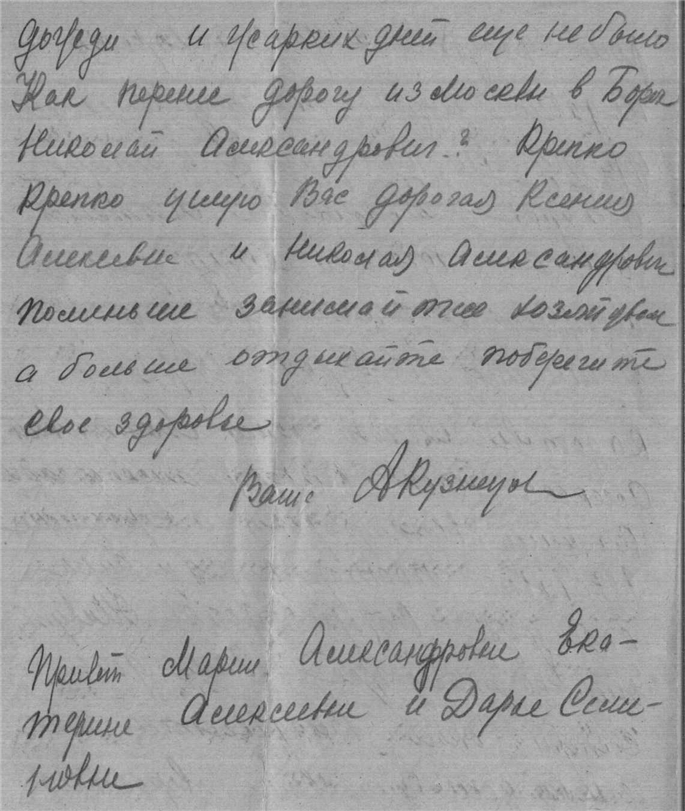 дожди и жарких дней еще не было
Как перенес дорогу из Москвы в Борок
Николай Александрович? Крепко
крепко целую Вас дорогая Ксения
Алексеевна и Николая Александровича
поменьше занимайтесь хозяйством
а больше отдыхайте поберегите
свое здоровье
Ваша АКузнецова
Привет Марии Александровне Ека-
терине Алексеевне и Дарье Семе-
новне